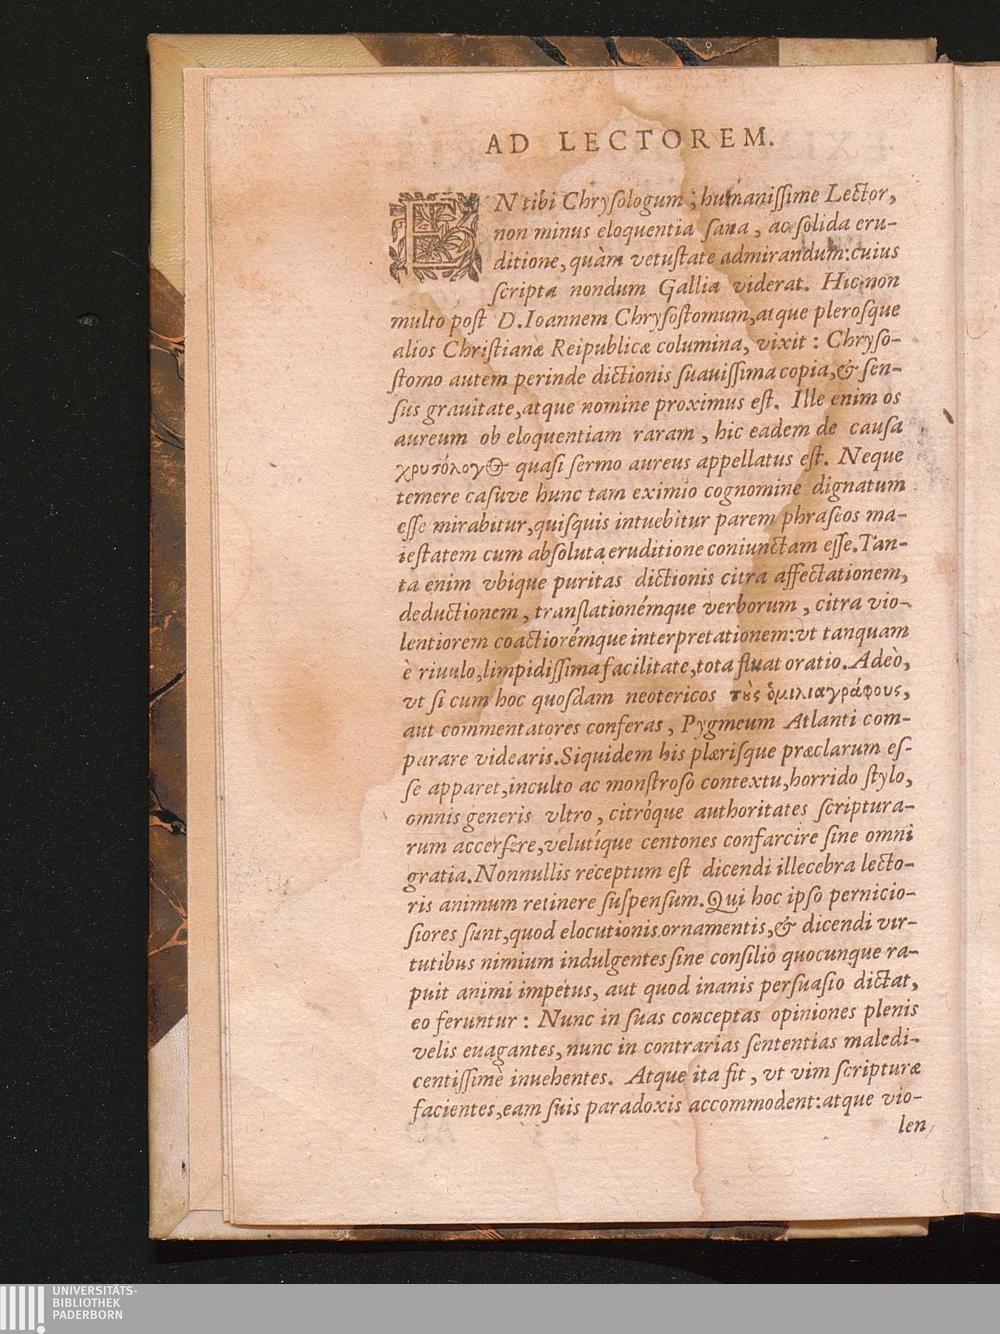 AD LECTOREM.
EN tibi Chryſologum; humaniſſime Lector,
non minus eloquentia ſana, ac ſolida eru-
ditione, quàm vetuſtate admirandum: cuius
ſcripta nondum Gallia viderat. Hic non
multo poſt D. Ioannem Chryſoſtomum, atque pleroſque
alios Chriſtianæ Reipublicæ columina, vixit: Chryſo-
ſtomo autem perinde dictionis ſuauiſſima copia, & ſen-
ſus grauitate, atque nomine proximus eſt. Ille enim os
aureum ob eloquentiam raram, hic eadem de cauſa
χρυσόλογος quaſi ſermo aureus appellatus eſt. Neque
temere caſuve hunc tam eximio cognomine dignatum
eſſe mirabitur, quiſquis intuebitur parem phraſeos ma-
ieſtatem cum abſoluta eruditione coniunctam eſſe. Tan-
ta enim vbique puritas dictionis citra affectationem,
deductionem, tranſlationémque verborum, citra vio-
lentiorem coactiorémque interpretationem: vt tanquam
è riuulo, limpidiſſima facilitate, tota fluat oratio. Adeò,
vt ſi cum hoc quoſdam neotericos τοὺς ὁμιλιαγράφους,
aut commentatores conferas, Pygmeum Atlanti com-
parare videaris. Siquidem his plæriſque præclarum eſ-
ſe apparet, inculto ac monſtroſo contextu, horrido ſtylo,
omnis generis vltro, citróque authoritates ſcriptura-
rum accerſere, velutíque centones confarcire ſine omni
gratia. Nonnullis receptum eſt dicendi illecebra lecto-
ris animum retinere ſuſpenſum. Qui hoc ipſo pernicio-
ſiores ſunt, quod elocutionis ornamentis, & dicendi vir-
tutibus nimium indulgentes ſine conſilio quocunque ra-
puit animi impetus, aut quod inanis perſuaſio dictat,
eo feruntur: Nunc in ſuas conceptas opiniones plenis
velis euagantes, nunc in contrarias ſententias maledi-
centiſſimè inuehentes. Atque ita fit, vt vim ſcripturæ
facientes, eam ſuis paradoxis accommodent: atque vio-
len
UNIVERSITÄTS-
BIBLIOTHEK
PADERBORN